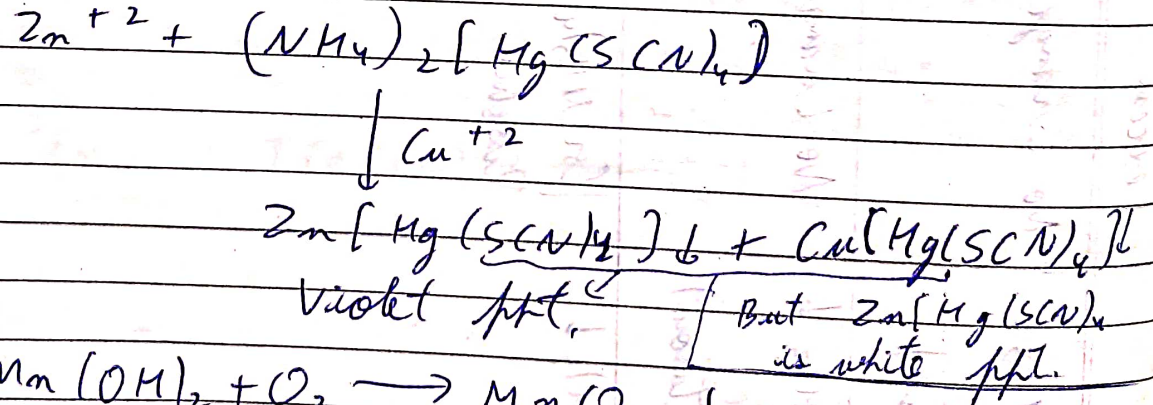 Zn⁺² + (NH₄)₂[Hg(SCN)₄]
↓ Cu⁺²
Zn[Hg(SCN)₄]↓ + Cu[Hg(SCN)₄]↓
Violet ppt.
But Zn[Hg(SCN)₄
is white ppt.
Mn(OH)₂ + O₂ ⟶